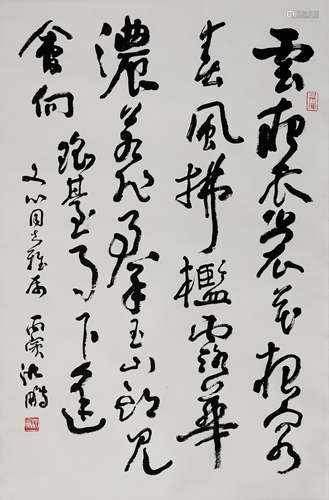 雲想衣裳花想容
春風拂檻露華
濃若非羣玉山頭見
會向瑤臺月下逢
文心同志雅属
丙寅 沈鹏